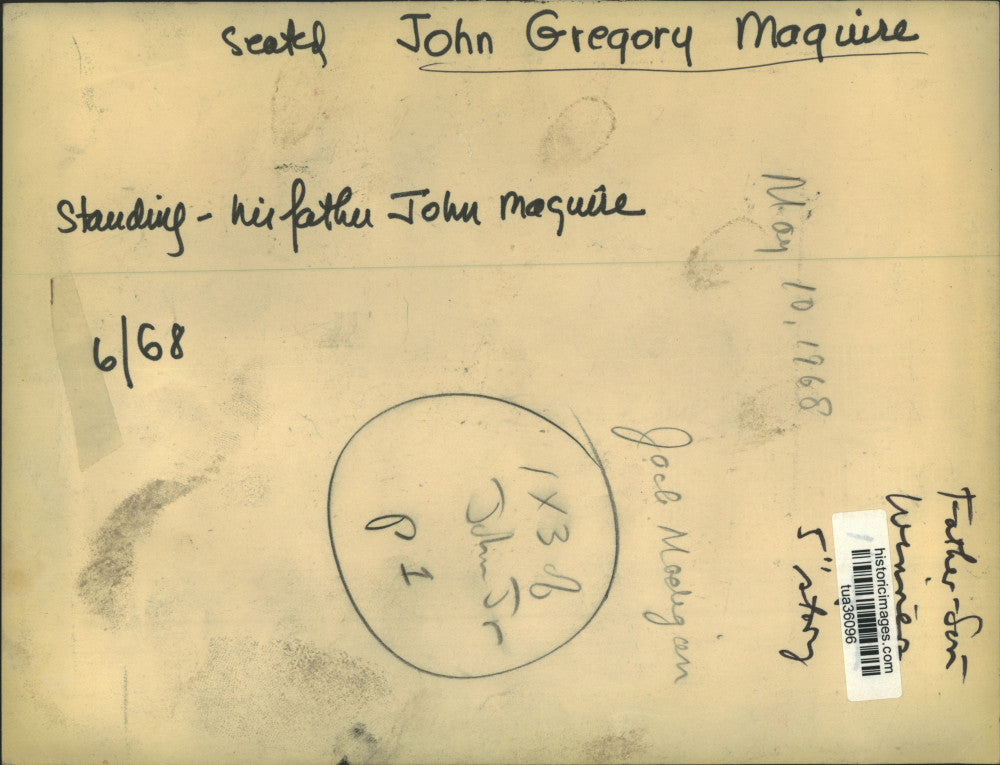 Seated John Gregory Maguire
Standing - his father John Maguire
6/68
May 10, 1968
Jack Madigan
1 X 3 of
John Jr
P 1
Father-Son
Winner
5" story
historicimages.com
tua36096